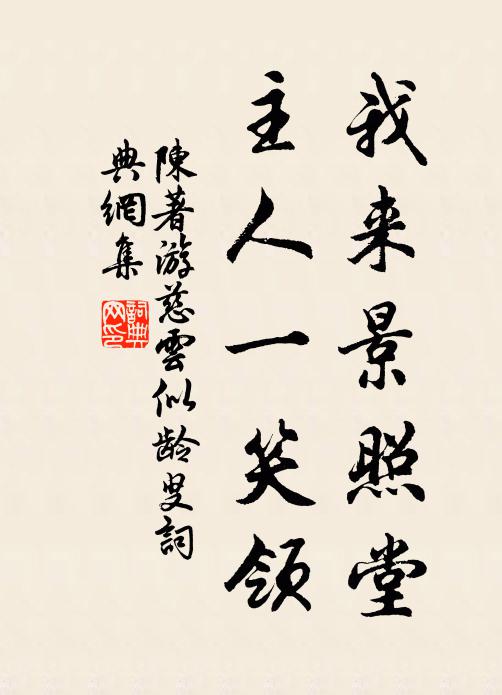 我来景照堂
主人一笑領
陳著游慈雲似龄叟詞
典網集
詞典網印